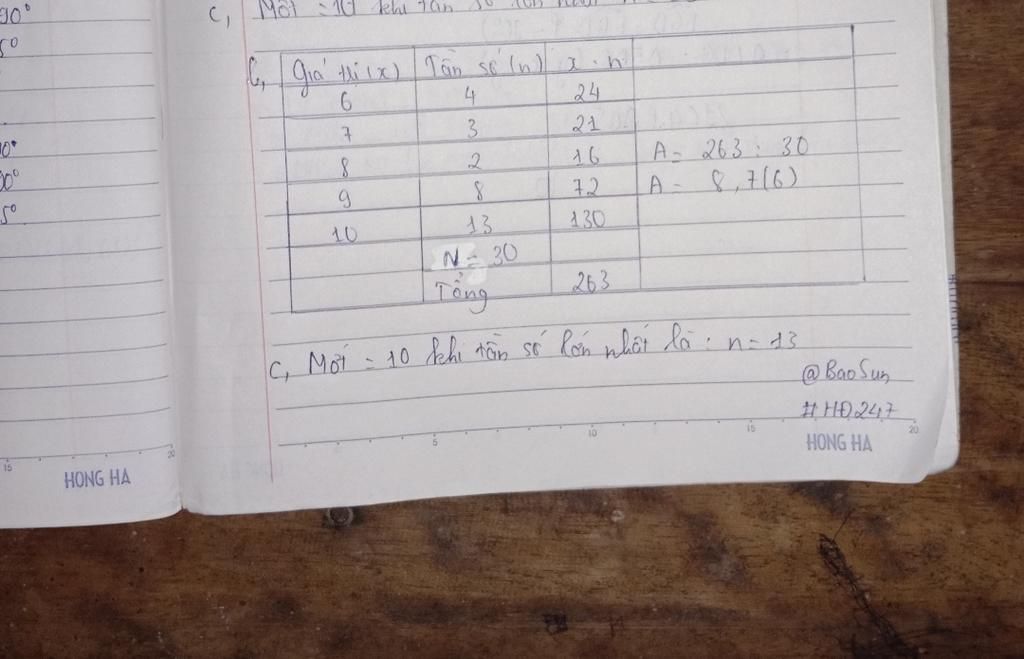 90°
5°
0°
90°
5°
15
20
HONG HA
C, Mốt = 10 khi tần số lớn nhất
b,
Giá trị (x) Tần số (n) x . n
6 4 24
7 3 21
8 2 16 A = 263 : 30
9 8 72 A = 8,7(6)
10 13 130
N = 30
Tổng 263
C, Mốt = 10 khi tần số lớn nhất là : n = 13
@BaoSun
#HĐ247
5 10 15 20
HONG HA